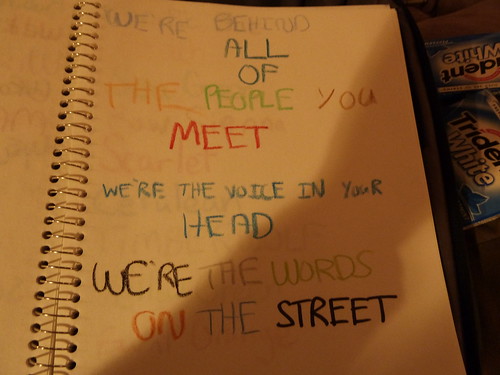 WE'RE BEHIND
ALL
OF
THE PEOPLE YOU
MEET
WE'RE THE VOICE IN YOUR
HEAD
WE'RE THE WORDS
ON THE STREET
dent
White
Tride
White